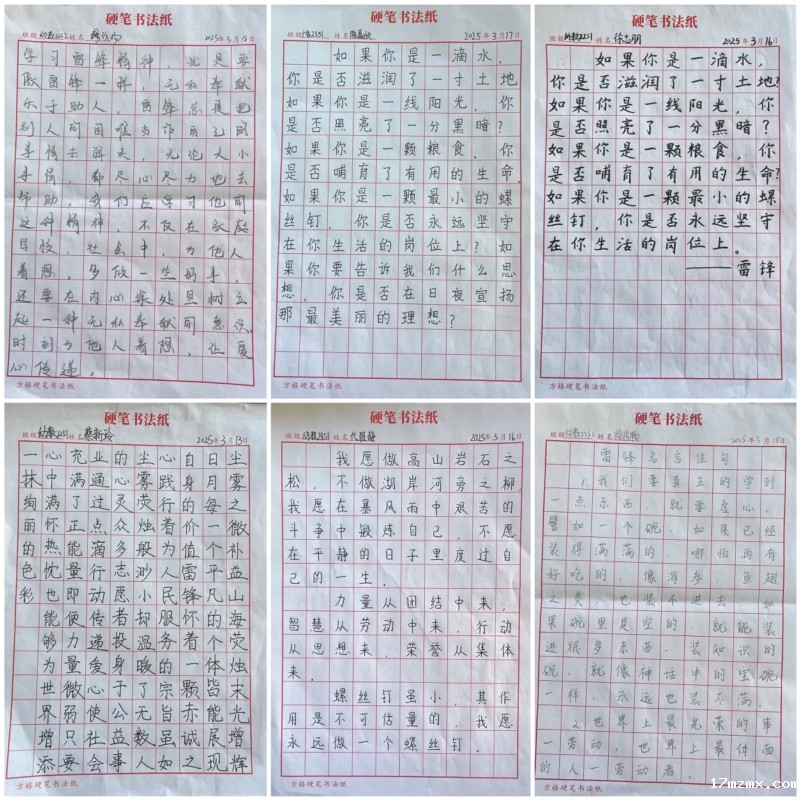 硬笔书法纸
2025年3月13日
学习雷锋精神，就是要
像雷锋一样，无私奉献
乐于助人，雷锋总是把
别人的困难当作自己的
事情去解决，无论大小
事情，都尽心尽力地去
帮助，我们应学习他的
这种精神，不仅在家庭
学校，社会中，为他人
着想，多做一些好事，
还要在内心深处里树立
起一种无私奉献的意识
时刻为他人着想，让爱
心传递。
方格硬笔书法纸
硬笔书法纸
2025年3月17日
如果你是一滴水，
你是否滋润了一寸土地
如果你是一线阳光，你
是否照亮了一分黑暗？
如果你是一颗粮食，你
是否哺育了有用的生命
如果你是一颗最小的螺
丝钉，你是否永远坚守
在你生活的岗位上？如
果你要告诉我们什么思
想，你是否在日夜宣扬
那最美丽的理想？
方格硬笔书法纸
硬笔书法纸
2025年3月16日
如果你是一滴水，
你是否滋润了一寸土地？
如果你是一线阳光，你
是否照亮了一分黑暗？
如果你是一颗粮食，你
是否哺育了有用的生命？
如果你是一颗最小的螺
丝钉，你是否永远坚守
在你生活的岗位上。
——雷锋
方格硬笔书法纸
硬笔书法纸
班级 幼教2251 姓名 蔡新玲 2025年3月13日
尘雾之微补益山海荧烛末光增辉
日月每一个平凡的个体皆能展现
自身的价值雷锋怀着一颗赤诚之
心践行着为人民服务的宗旨虽如
尘雾荧烛般渺小却温暖了无数人
的心灵众多志愿者投身于公益事
业通过点滴行动传递爱心使社会
充满了正能量即便力量微弱只要
心中满怀热忱也能够为世界增添
一抹绚丽的色彩
方格硬笔书法纸
硬笔书法纸
2025年3月16日
我愿做高山岩石之
松，不做湖岸河旁之柳，
我愿在暴风雨中艰苦的
斗争中锻炼自己，不愿
在平静的日子里度过自
己的一生。
力量从团结中来，
智慧从劳动中来，行动
从思想来，荣誉从集体
来。
螺丝钉虽小，其作
用是不可估量的，我愿
永远做一个螺丝钉。
方格硬笔书法纸
硬笔书法纸
2025年3月18日
雷锋名言佳句
1.我们要真正的学到
一点东西，就要虚心。
譬如一个碗，如果已经
装得满满的，哪怕再有
好吃的，像海参，鱼翅
之类，也装不进去，如
果碗里是空的，就能装
进很多东西，装知识的
碗，就像神话中的宝碗
一样，永远也装不满。
2.世界上最光荣的事
一劳动，世界上最体面
的人一劳动者。
方格硬笔书法纸
17mzmx.com